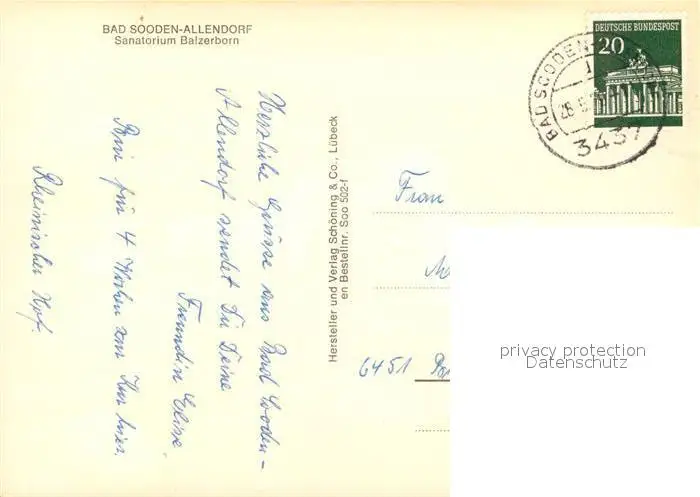 BAD SOODEN-ALLENDORF
Sanatorium Balzerborn
Herzliche Grüsse aus Bad Sooden-
Allendorf sendet Dir Deine
Freundin Elise.
Bin für 4 Wochen zur Kur hier.
Rheinischer Hof.
Hersteller und Verlag Schöning & Co., Lübeck
en Bestellnr. Soo 502-f
DEUTSCHE BUNDESPOST
20
BAD SOODEN-
3437
Frau
6451
privacy protection
Datenschutz